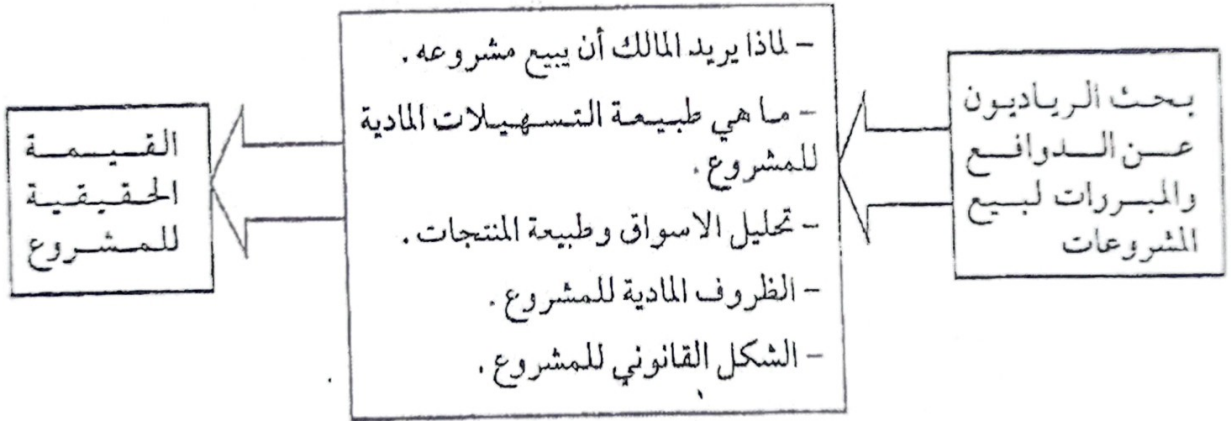 بحث الرياديون
عن الدوافع
والمبررات لبيع
المشروعات
- لماذا يريد المالك أن يبيع مشروعه .
- ما هي طبيعة التسهيلات المادية
للمشروع .
- تحليل الاسواق وطبيعة المنتجات .
- الظروف المادية للمشروع .
- الشكل القانوني للمشروع .
القيمة
الحقيقية
للمشروع